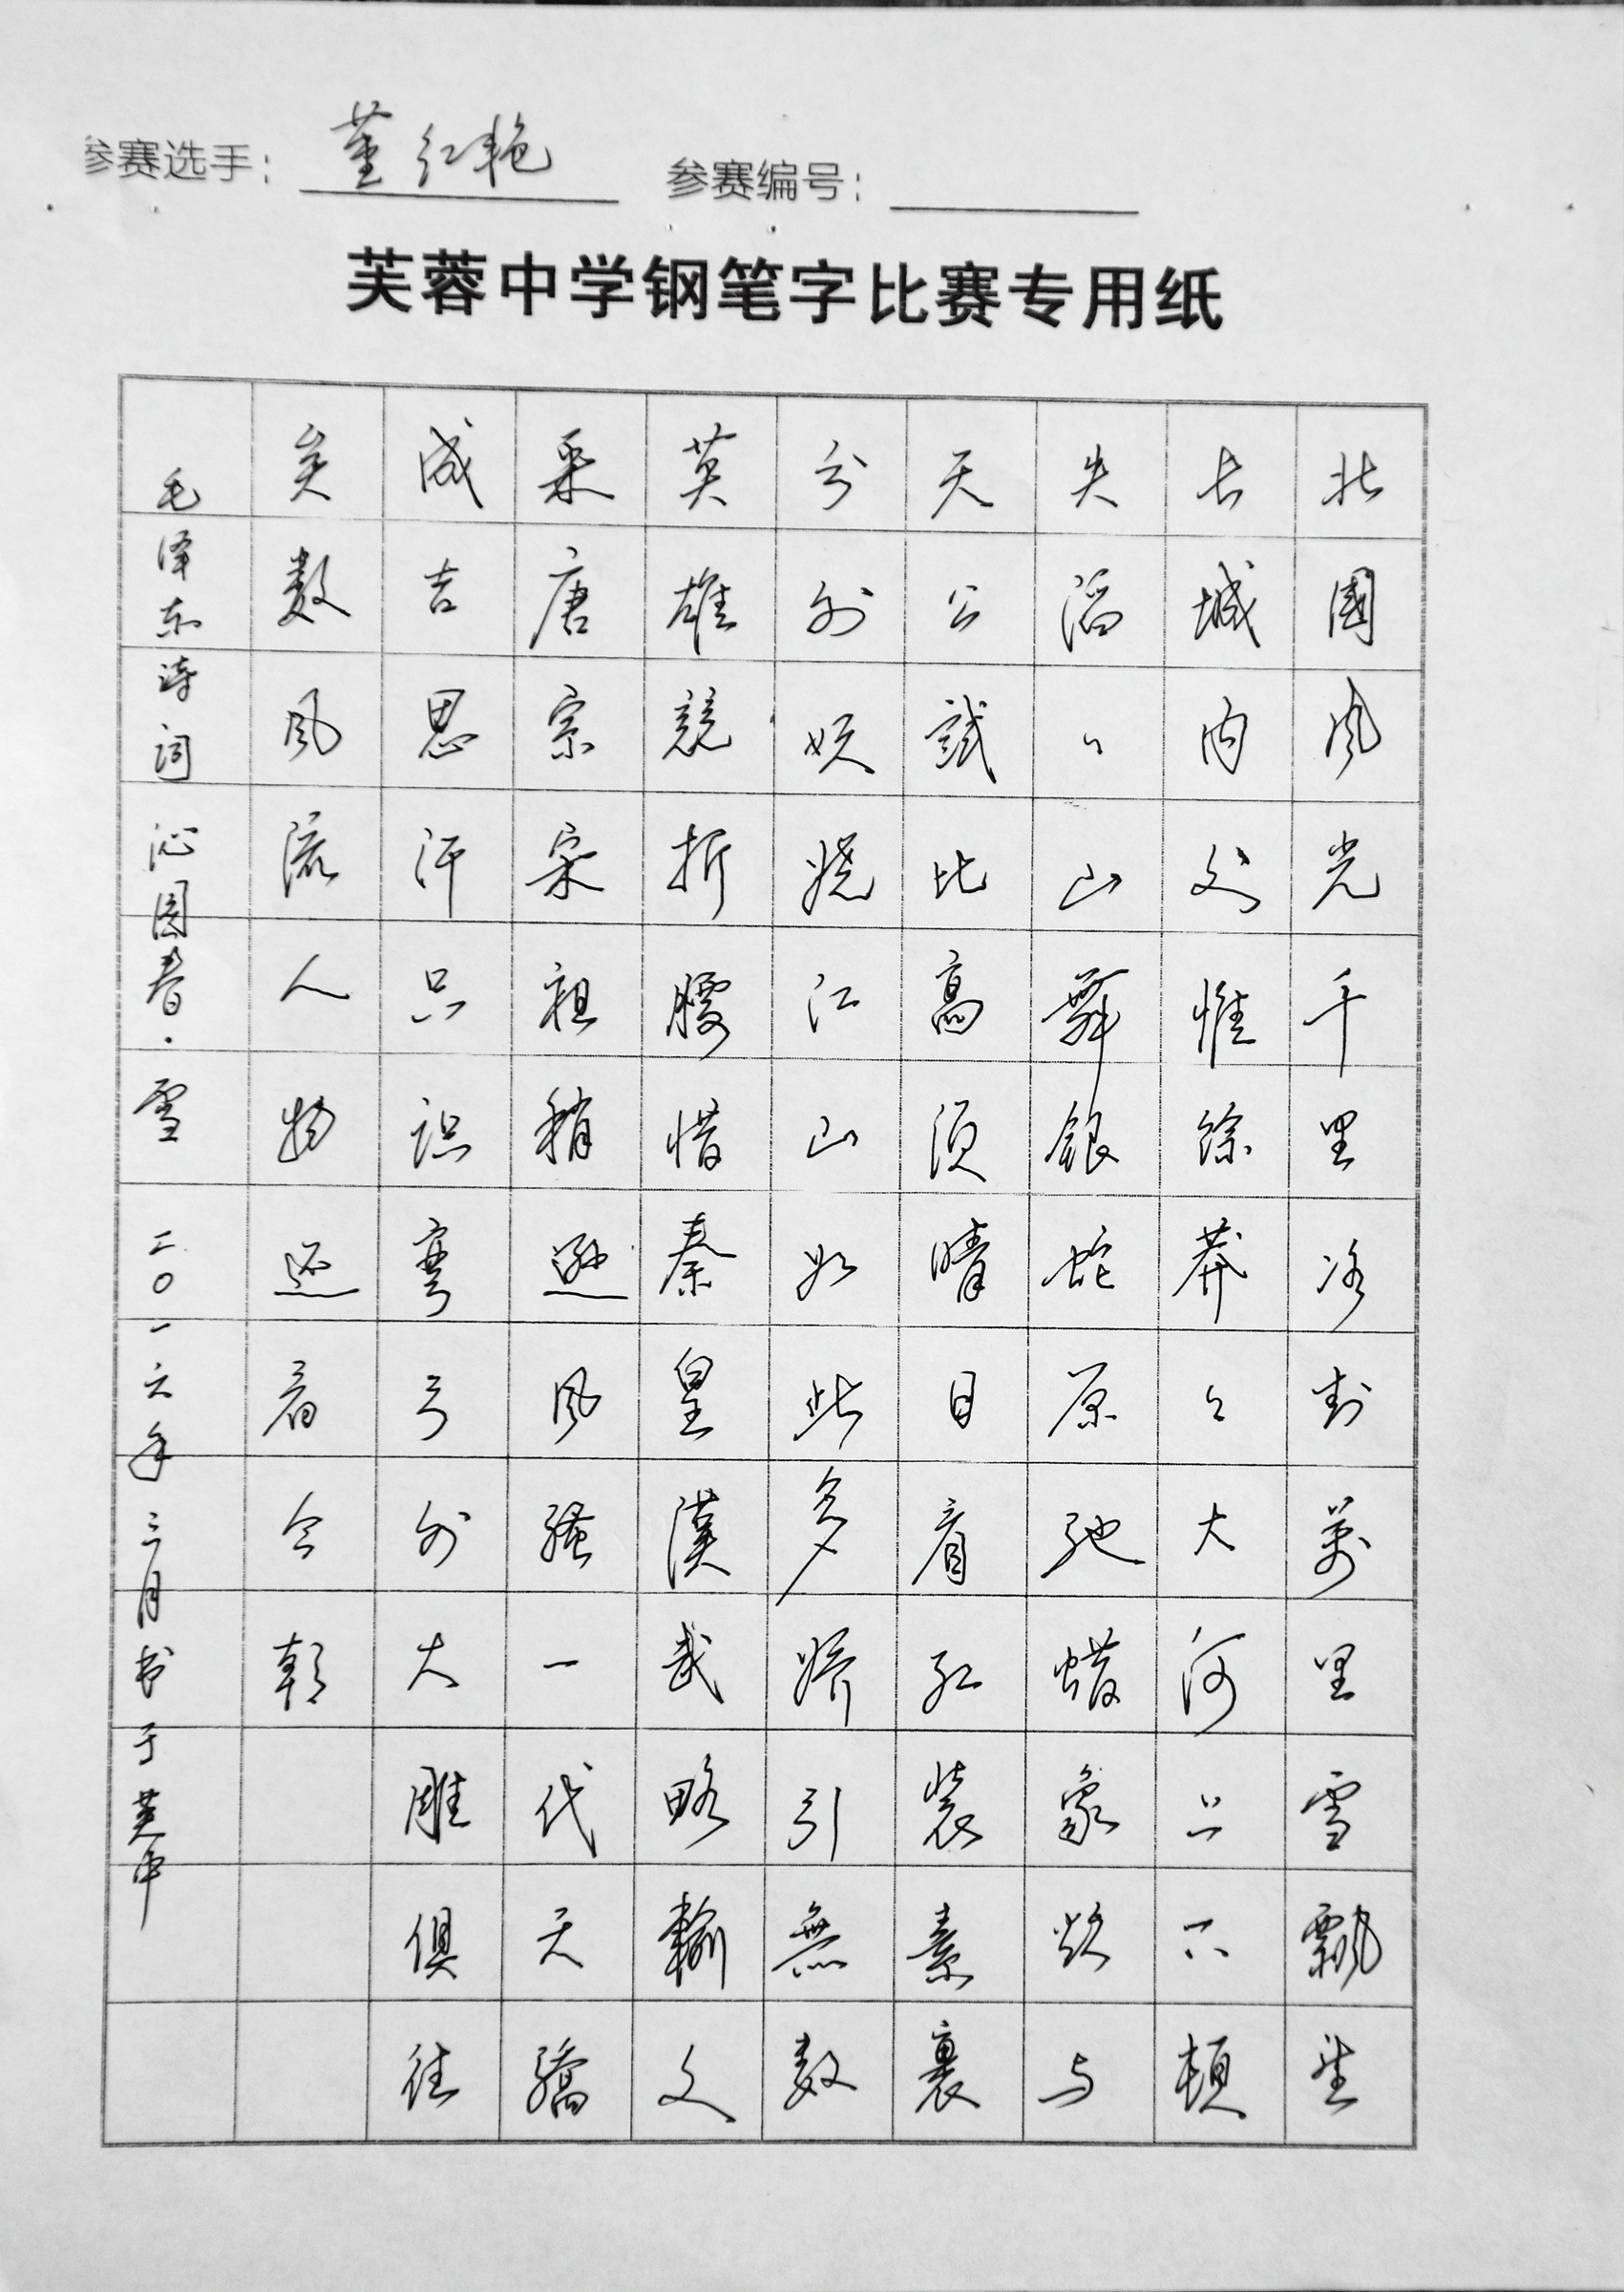 参赛选手：董红艳 参赛编号：
芙蓉中学钢笔字比赛专用纸
北國风光千里冰封萬里雪飄望
长城内外惟馀莽々大河上下頓
失滔々山舞銀蛇原驰蜡象欲与
天公試比高须晴日看红装素裹
分外妖娆江山如此多娇引無数
英雄競折腰惜秦皇漢武略輸文
采唐宗宋祖稍逊风骚一代天驕
成吉思汗只识弯弓射大雕俱往
矣数风流人物还看今朝
毛泽东诗词 沁园春·雪 二〇一六年三月书于芙中